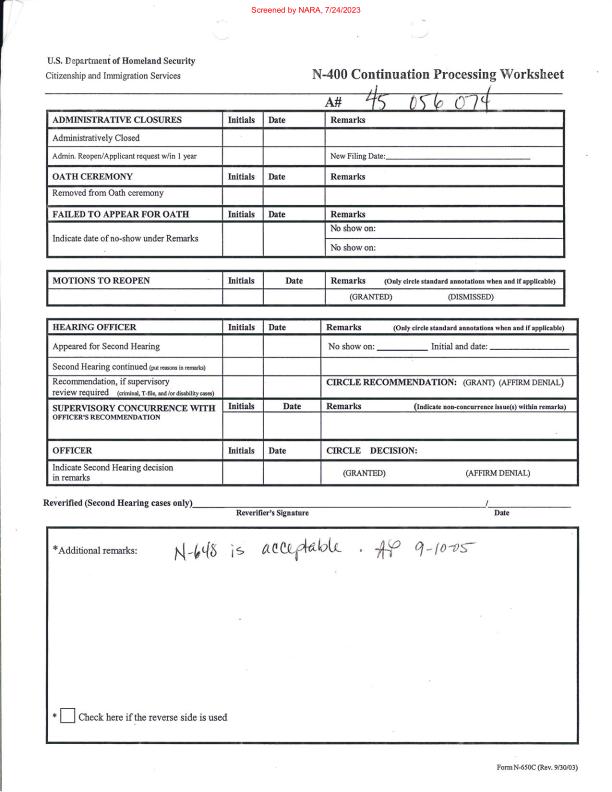 Screened by NARA, 7/24/2023
U.S. Department of Homeland Security
Citizenship and Immigration Services
N-400 Continuation Processing Worksheet
A# 45 056 074
ADMINISTRATIVE CLOSURES Initials Date Remarks
Administratively Closed
Admin. Reopen/Applicant request w/in 1 year New Filing Date:
OATH CEREMONY Initials Date Remarks
Removed from Oath ceremony
FAILED TO APPEAR FOR OATH Initials Date Remarks
Indicate date of no-show under Remarks
No show on:
No show on:
MOTIONS TO REOPEN Initials Date Remarks (Only circle standard annotations when and if applicable)
(GRANTED) (DISMISSED)
HEARING OFFICER Initials Date Remarks (Only circle standard annotations when and if applicable)
Appeared for Second Hearing No show on: Initial and date:
Second Hearing continued (put reasons in remarks)
Recommendation, if supervisory
review required (criminal, T-file, and /or disability cases)
CIRCLE RECOMMENDATION: (GRANT) (AFFIRM DENIAL)
SUPERVISORY CONCURRENCE WITH
OFFICER'S RECOMMENDATION
Initials Date Remarks (Indicate non-concurrence issue(s) within remarks)
OFFICER Initials Date CIRCLE DECISION:
Indicate Second Hearing decision
in remarks
(GRANTED) (AFFIRM DENIAL)
Reverified (Second Hearing cases only) /
Reverifier's Signature Date
*Additional remarks: N-648 is acceptable. AP 9-10-05
* Check here if the reverse side is used
Form N-650C (Rev. 9/30/03)